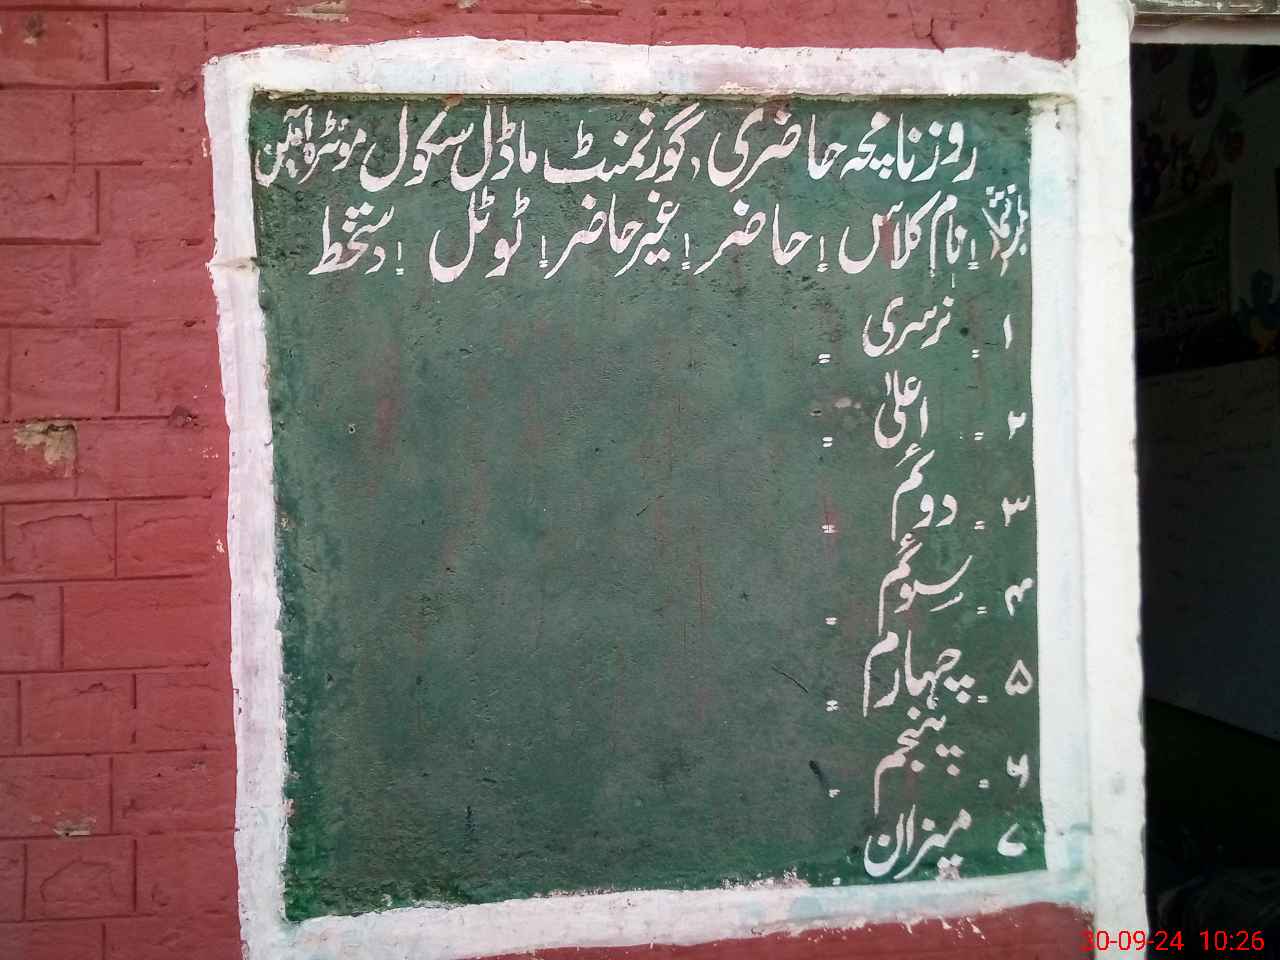 روزنامچہ حاضری، گورنمنٹ ماڈل سکول
نمبر شمار نام کلاس حاضر غیر حاضر ٹوٹل دستخط
۱ نرسری
۲ اعلیٰ
۳ دوئم
۴ سوئم
۵ چہارم
۶ پنجم
۷ میزان
30-09-24 10:26